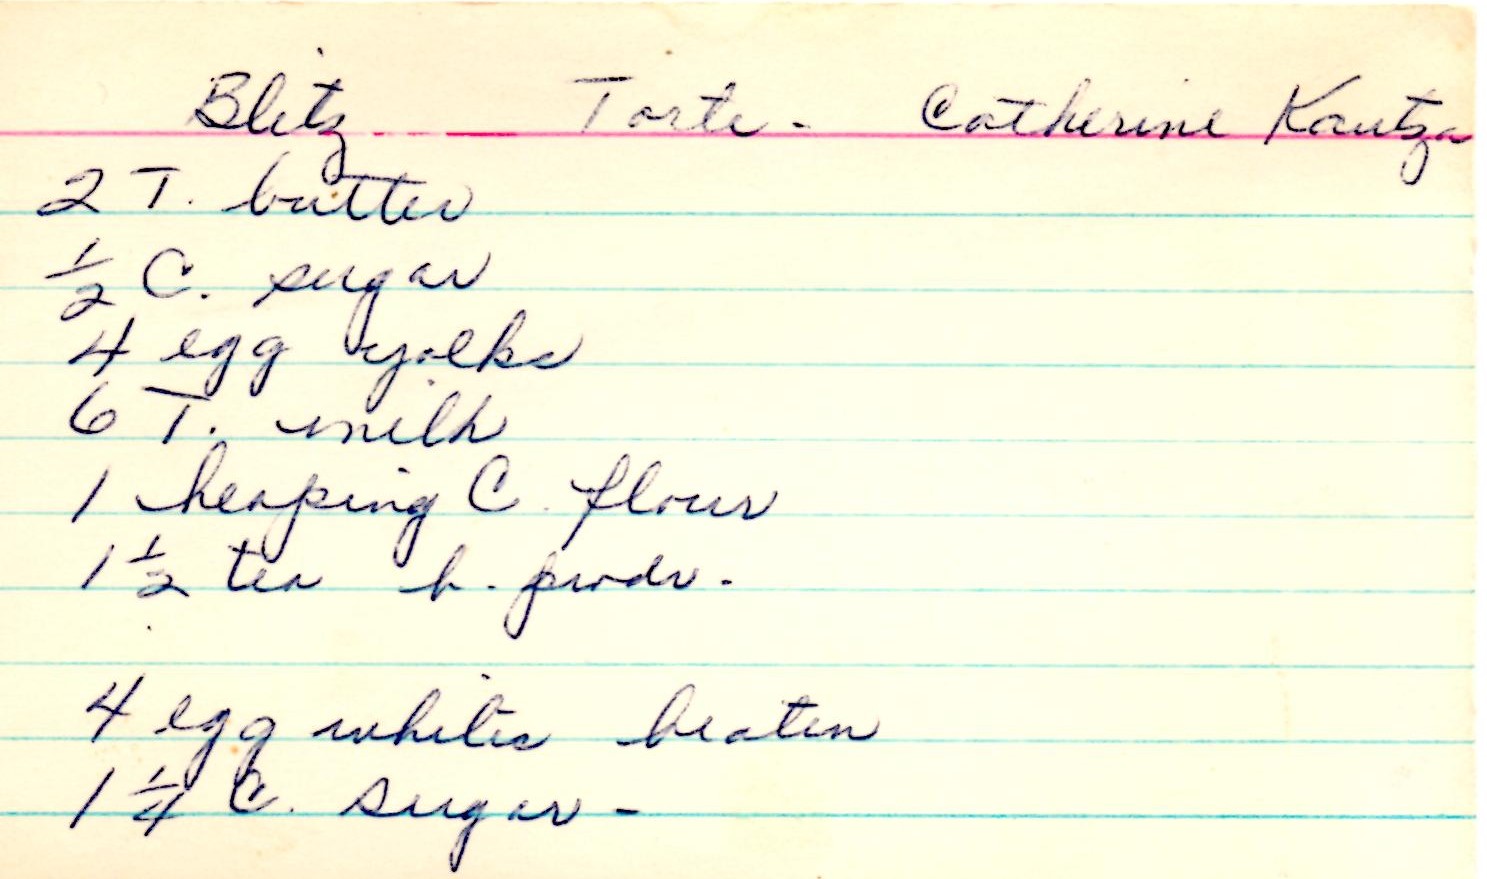 Blitz Torte - Catherine Kautza
2 T. butter
1/2 C. sugar
4 egg yolks
6 T. milk
1 heaping C. flour
1 1/2 tea b. powdr.
4 egg whites beaten
1 1/4 C. sugar -